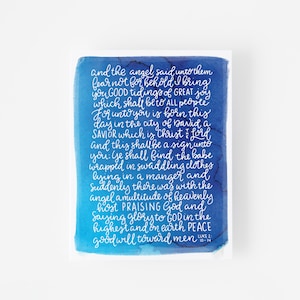 and the angel said unto them
fear not for behold I bring
you GOOD tidings of GREAT joy
which shall be to ALL people
for unto you is born this
day in the city of David, a
SAVIOR which is Christ the Lord
and this shall be a sign unto
you: Ye shall find the babe
wrapped in swaddling clothes
lying in a manger and
suddenly there was with the
angel a multitude of heavenly
host PRAISING God and
saying glory to GOD in the
highest and on earth PEACE
good will toward men LUKE 2
10-14